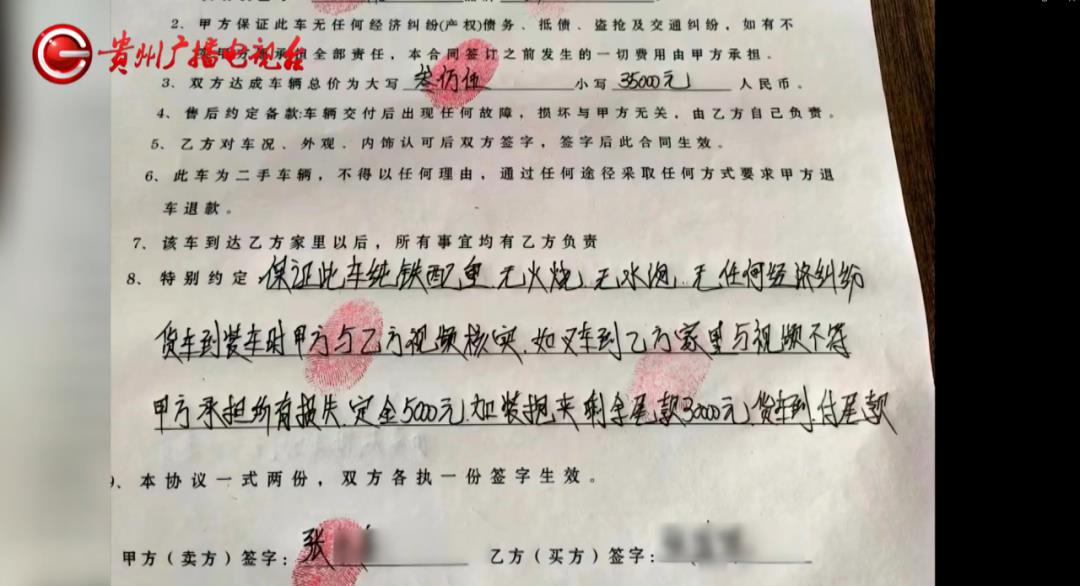 贵州广播电视台
2、甲方保证此车无任何经济纠纷(产权)债务、抵债、盗抢及交通纠纷，如有不
担全部责任，本合同签订之前发生的一切费用由甲方承担。
3、双方达成车辆总价为大写 叁佰伍 小写 35000元 人民币。
4、售后约定备款:车辆交付后出现任何故障，损坏与甲方无关，由乙方自己负责。
5、乙方对车况、外观、内饰认可后双方签字，签字后此合同生效。
6、此车为二手车辆，不得以任何理由，通过任何途径采取任何方式要求甲方退
车退款。
7、该车到达乙方家里以后，所有事宜均有乙方负责
8、特别约定:保证此车纯铁配重.无火烧.无水泡.无任何经济纠纷
货车到装车时甲方与乙方视频核实.如叉车到乙方家里与视频不符
甲方承担所有损失.定金5000元.加装抱夹.剩余尾款30000元.货车到.付尾款
9、本协议一式两份，双方各执一份签字生效。
甲方（卖方）签字：张
乙方（买方）签字：